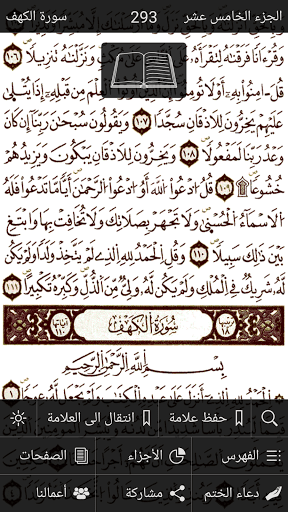 الجزء الخامس عشر 293 سورة الكهف
وَقُرْءَانًا فَرَقْنَٰهُ لِتَقْرَأَهُۥ
وَنَزَّلْنَٰهُ تَنزِيلًا ١٠٦
قُلْ ءَامِنُوا۟ بِهِۦٓ أَوْ لَا تُؤْمِنُوٓا۟ ۚ
مِن قَبْلِهِۦٓ إِذَا يُتْلَىٰ
عَلَيْهِمْ يَخِرُّونَ لِلْأَذْقَانِ سُجَّدًا ١٠٧ وَيَقُولُونَ سُبْحَٰنَ رَبِّنَآ إِن كَانَ
وَعْدُ رَبِّنَا لَمَفْعُولًا ١٠٨ وَيَخِرُّونَ لِلْأَذْقَانِ يَبْكُونَ وَيَزِيدُهُمْ
خُشُوعًا ۩ ١٠٩ قُلِ ٱدْعُوا۟ ٱللَّهَ أَوِ ٱدْعُوا۟ ٱلرَّحْمَٰنَ ۖ أَيًّا مَّا تَدْعُوا۟ فَلَهُ
ٱلْأَسْمَآءُ ٱلْحُسْنَىٰ ۚ وَلَا تَجْهَرْ بِصَلَاتِكَ وَلَا تُخَافِتْ بِهَا وَٱبْتَغِ
بَيْنَ ذَٰلِكَ سَبِيلًا ١١٠ وَقُلِ ٱلْحَمْدُ لِلَّهِ ٱلَّذِى لَمْ يَتَّخِذْ وَلَدًا وَلَمْ يَكُن
لَّهُۥ شَرِيكٌ فِى ٱلْمُلْكِ وَلَمْ يَكُن لَّهُۥ وَلِىٌّ مِّنَ ٱلذُّلِّ ۖ وَكَبِّرْهُ تَكْبِيرًۢا ١١١
ترتيبها ١٨ سُورَةُ الكَهْفِ آياتها ١١٠
بِسْمِ ٱللَّهِ ٱلرَّحْمَٰنِ ٱلرَّحِيمِ
حفظ علامة انتقال الى العلامة
الفهرس الأجزاء الصفحات
دعاء الختم مشاركة أعمالنا